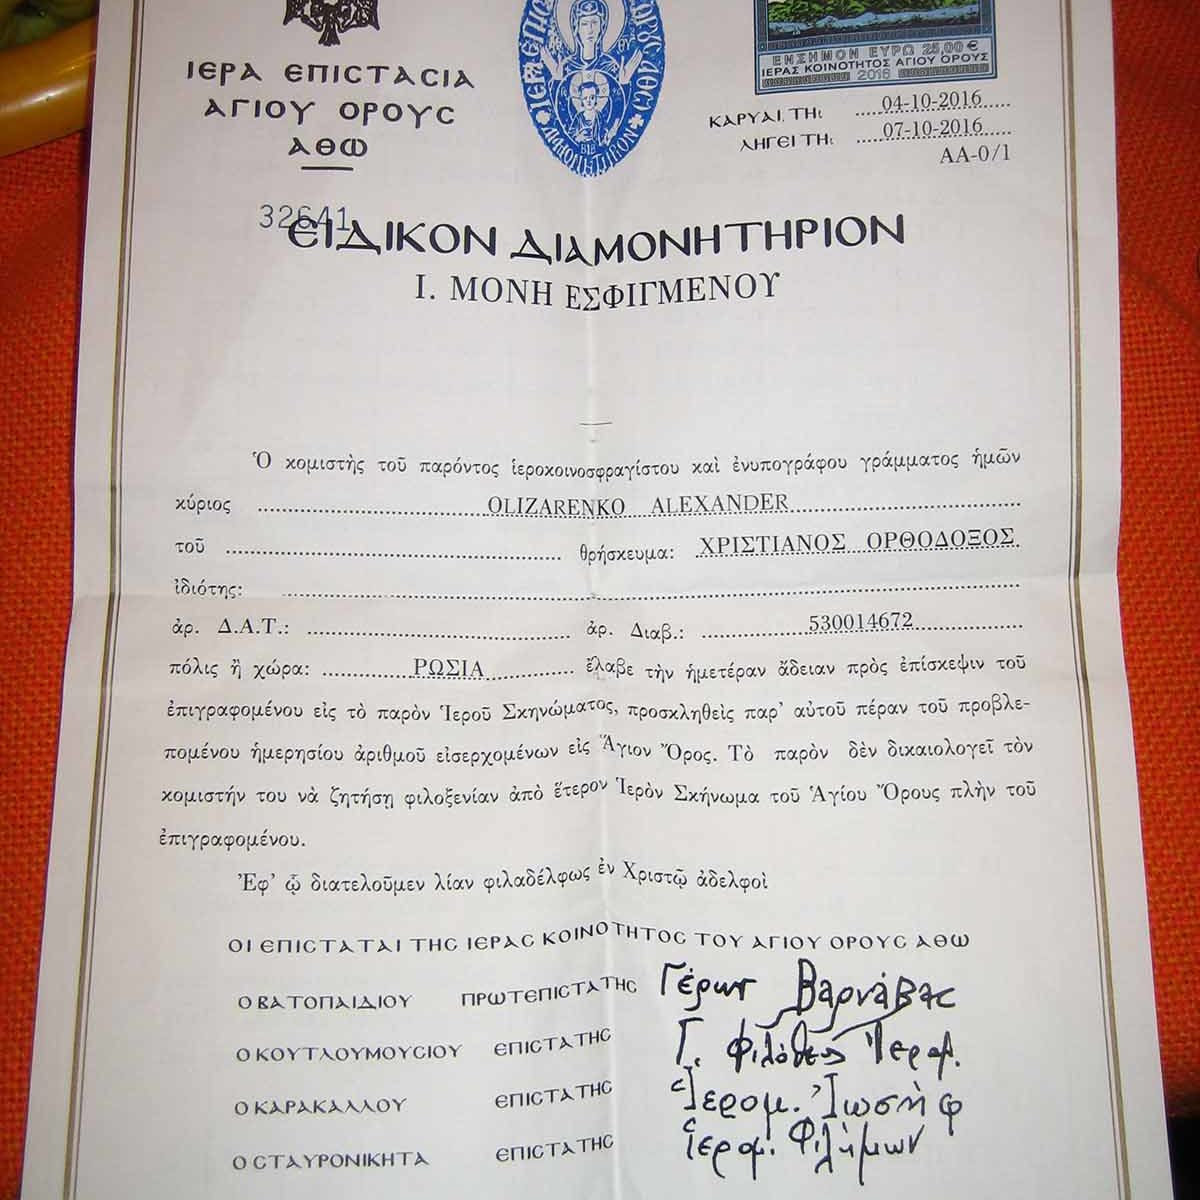 ΙΕΡΑ ΕΠΙCΤΑCΙΑ
ΑΓΙΟΥ ΟΡΟΥC
ΑΘΩ
ΕΝΣΗΜΟΝ ΕΥΡΩ 25,00 €
ΙΕΡΑΣ ΚΟΙΝΟΤΗΤΟΣ ΑΓΙΟΥ ΟΡΟΥΣ
2016
ΚΑΡΥΑΙ, ΤΗ: 04-10-2016
ΛΗΓΕΙ ΤΗ: 07-10-2016
ΑΑ-0/1
32641
ΕΙΔΙΚΟΝ ΔΙΑΜΟΝΗΤΗΡΙΟΝ
Ι. ΜΟΝΗ ΕΣΦΙΓΜΕΝΟΥ
Ὁ κομιστὴς τοῦ παρόντος ἱεροκοινοσφραγίστου καὶ ἐνυπογράφου γράμματος ἡμῶν
κύριος OLIZARENKO ALEXANDER
τοῦ θρήσκευμα: ΧΡΙΣΤΙΑΝΟΣ ΟΡΘΟΔΟΞΟΣ
ἰδιότης:
ἀρ. Δ.Α.Τ.: ἀρ. Διαβ.: 530014672
πόλις ἢ χώρα: ΡΩΣΙΑ ἔλαβε τὴν ἡμετέραν ἄδειαν πρὸς ἐπίσκεψιν τοῦ
ἐπιγραφομένου εἰς τὸ παρὸν Ἱεροῦ Σκηνώματος, προσκληθεὶς παρ' αὐτοῦ πέραν τοῦ προβλε-
πομένου ἡμερησίου ἀριθμοῦ εἰσερχομένων εἰς Ἅγιον Ὄρος. Τὸ παρὸν δὲν δικαιολογεῖ τὸν
κομιστήν του νὰ ζητήσῃ φιλοξενίαν ἀπὸ ἕτερον Ἱερὸν Σκήνωμα τοῦ Ἁγίου Ὄρους πλὴν τοῦ
ἐπιγραφομένου.
Ἐφ' ᾧ διατελοῦμεν λίαν φιλαδέλφως ἐν Χριστῷ ἀδελφοὶ
ΟΙ ΕΠΙCΤΑΤΑΙ ΤΗC ΙΕΡΑC ΚΟΙΝΟΤΗΤΟC ΤΟΥ ΑΓΙΟΥ ΟΡΟΥC ΑΘΩ
Ο ΒΑΤΟΠΑΙΔΙΟΥ ΠΡΩΤΕΠΙCΤΑΤΗC Γέρων Βαρνάβας
Ο ΚΟΥΤΛΟΥΜΟΥCΙΟΥ ΕΠΙCΤΑΤΗC Γ. Φιλόθεος Ἱερομ.
Ο ΚΑΡΑΚΑΛΛΟΥ ΕΠΙCΤΑΤΗC Ἱερομ. Ἰωσὴφ
Ο CΤΑΥΡΟΝΙΚΗΤΑ ΕΠΙCΤΑΤΗC Ἱερομ. Φιλήμων